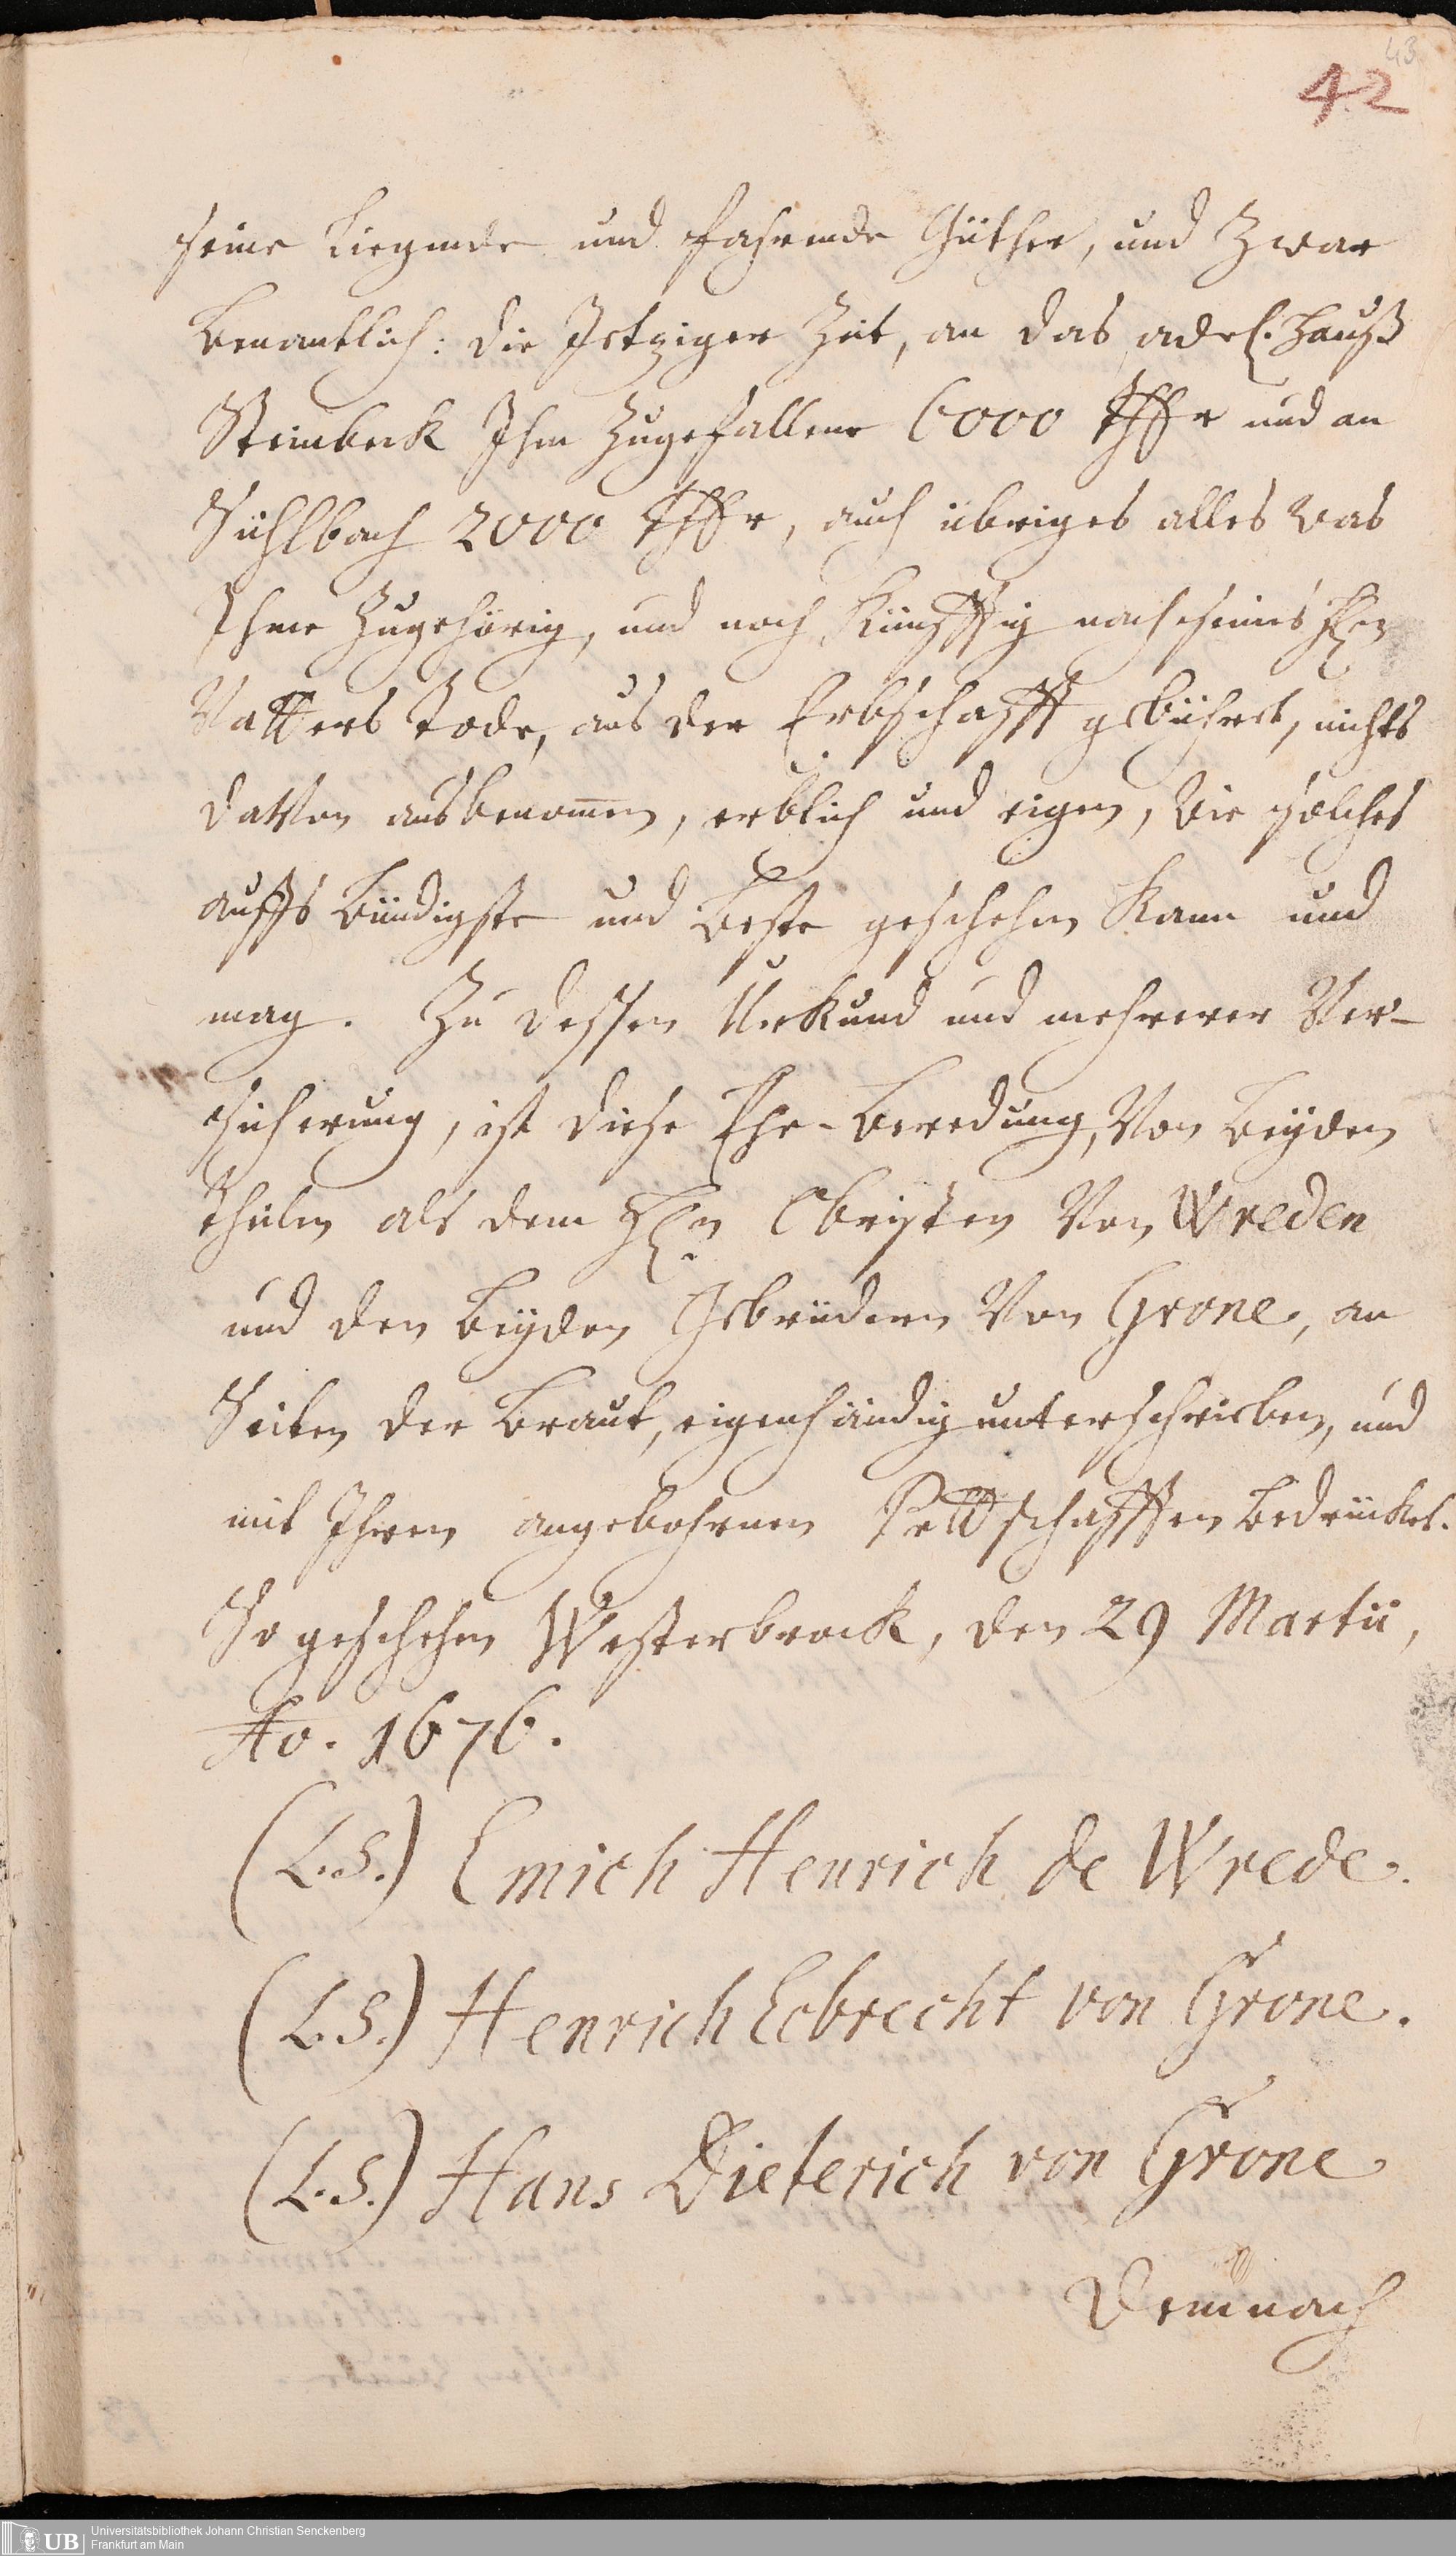 43
42
seine Liegende und fahrende Güther, und Zwar
Benantlich: die Jetziger Zeit, an das adel. Hauß
Steinbeck Ihm Zugefallene 6000 Thlr und an
Sühlbach 2000 Thlr, auch übriges alles was
Ihme Zugehörig, und noch Künfftig nach seines Hen
Vatters Tode, aus der Erbschafft gebühret, nichts
davon ausbenom̅en, erblich und eigen, wie solches
auffs Bündigste und Beste geschehen Kann und
mag. Zu dessen Urkund und mehrerer Ver-
sicherung, ist diese Ehe-Beredung, Von Beyden
theilen als dem Hen Obristen Von Wreden
und den Beyden Gebrüdern Von Grone, an
Seiten der Braut, eigenhändig unterschrieben, und
mit Ihren angebohrnen Pettschafften Bedrücket.
So geschehen Westerbrock, den 29 Martii,
Ao. 1676.
(L.S.) Emich Henrich de Wrede.
(L.S.) Henrich Ecbrecht von Grone.
(L.S.) Hans Dieterich von Grone
Demnach
UB Universitätsbibliothek Johann Christian Senckenberg
Frankfurt am Main